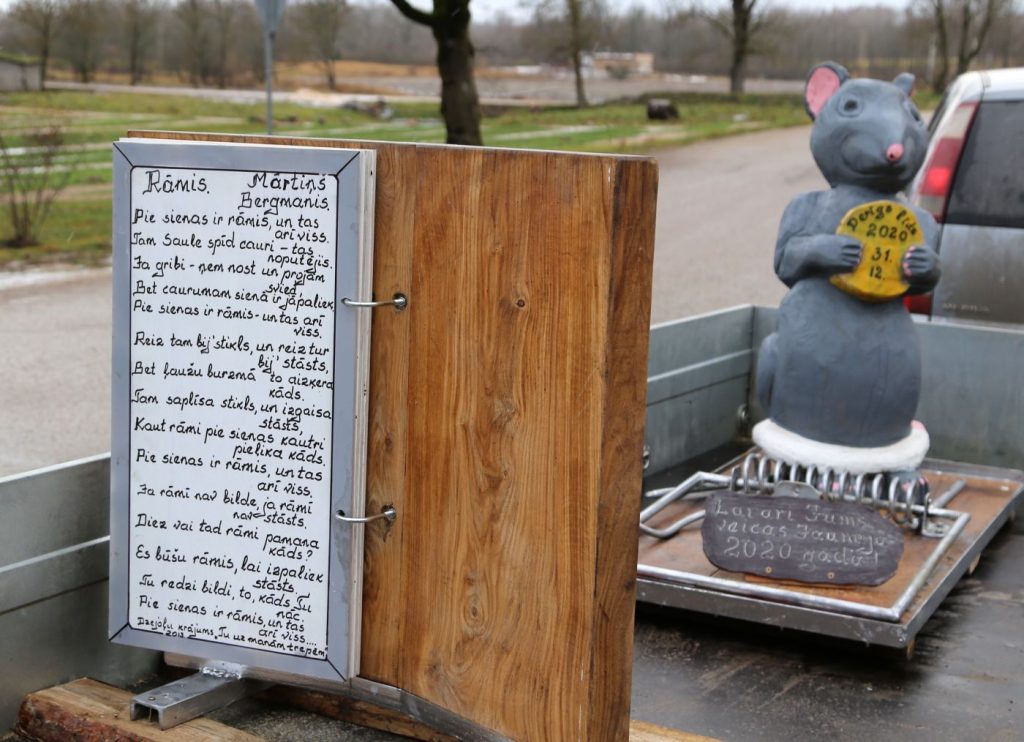 Rāmis. Mārtiņš
Bergmanis.
Pie sienas ir rāmis, un tas
arī viss.
Tam Saule spīd cauri - tas
noputējis.
Ja gribi - ņem nost un projām
svied,
Bet caurumam sienā ir jāpaliek
Pie sienas ir rāmis - un tas arī
viss.
Reiz tam bij' stikls, un reiz tur
bij' stāsts,
Bet ļaužu burzmā to aizķēra
kāds.
Tam saplīsa stikls, un izgaisa
stāsts,
Kaut rāmi pie sienas kautri
pielika kāds.
Pie sienas ir rāmis, un tas
arī viss.
Ja rāmī nav bilde, ja rāmī
nav stāsts,
Diez vai tad rāmi pamana
kāds?
Es būšu rāmis, lai izpaliek
stāsts,
Tu redzi bildi, to, kāds Tu
nāc.
Pie sienas ir rāmis, un tas
arī viss....
Dzejoļu krājums "Tu uz manām trepēm"
Derīgs līdz
2020
31.
12.
Lai arī Jums
veicas Jaunajā
2020 gadā!